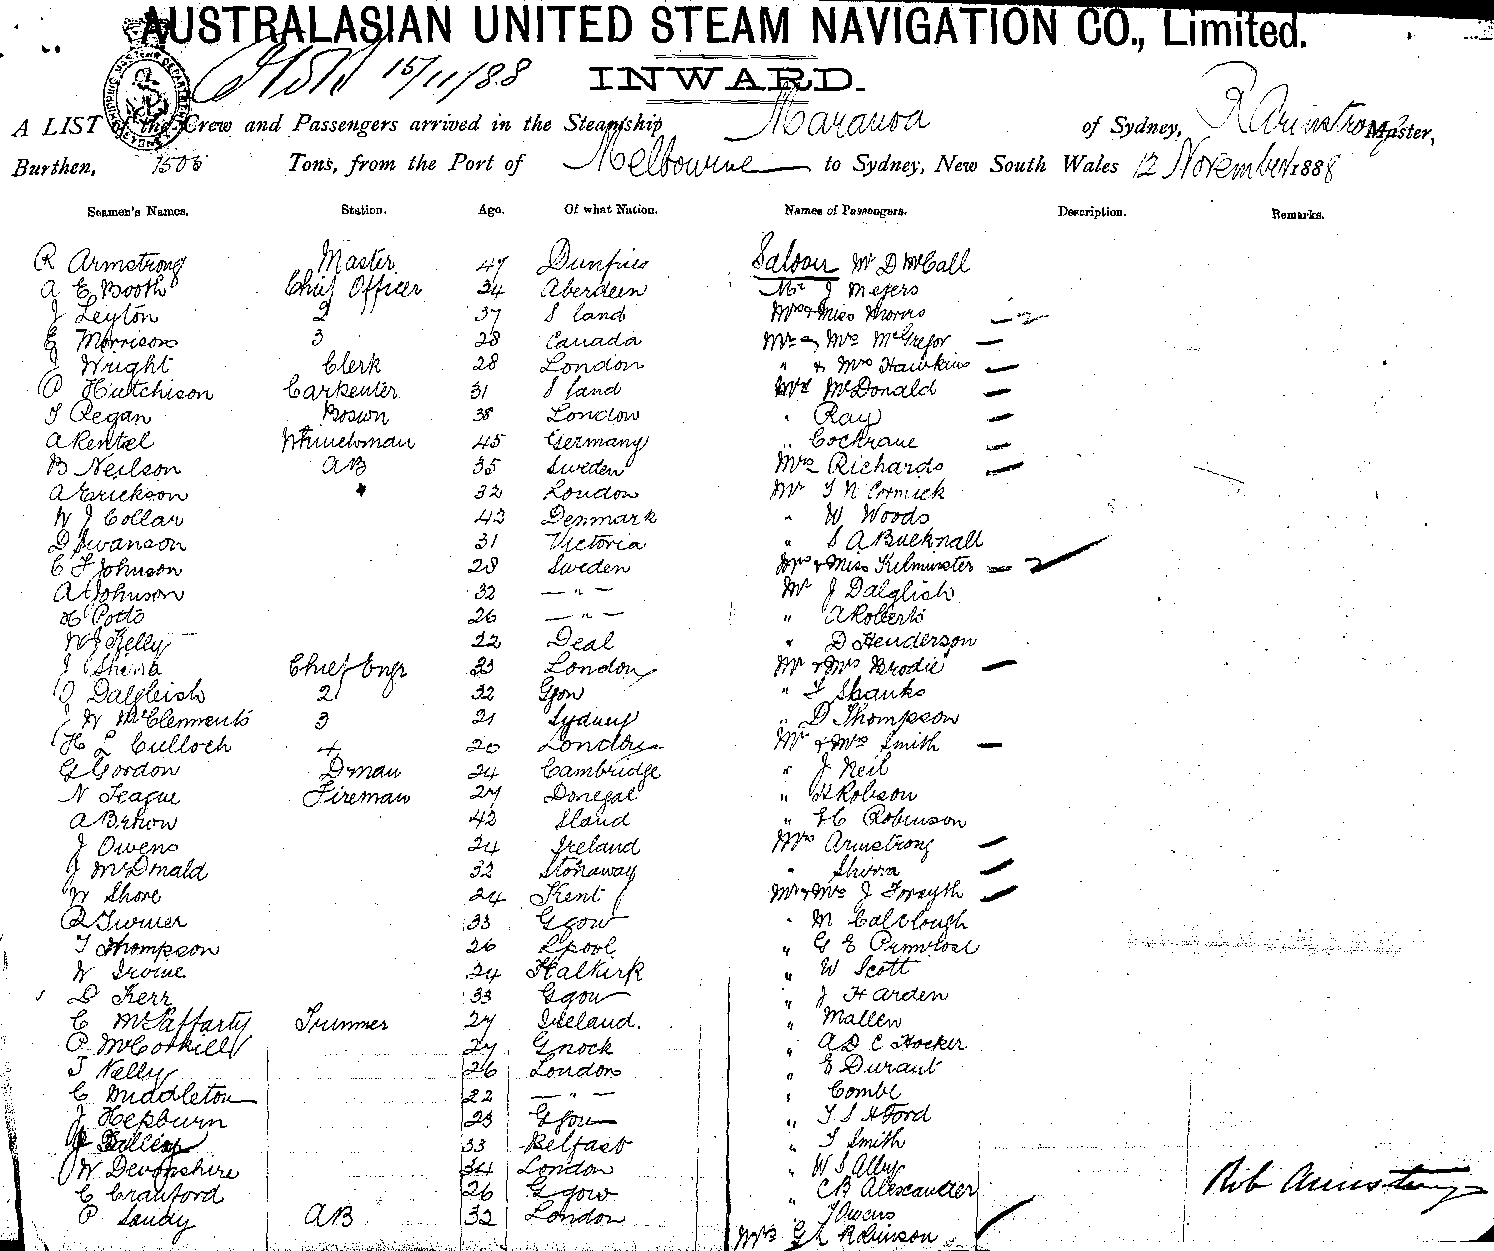 AUSTRALASIAN UNITED STEAM NAVIGATION CO., Limited.
15/11/88 INWARD.
A LIST of the Crew and Passengers arrived in the Steamship Maranoa of Sydney, R Armstrong Master,
Burthen, 1505 Tons, from the Port of Melbourne to Sydney, New South Wales 12 November 1888
Seamen's Names. Station. Age. Of what Nation. Names of Passengers. Description. Remarks.
R Armstrong Master 47 Dunfries Saloon Mr D McCall
A E Booth Chief Officer 34 Aberdeen Mr J Meyers
J Leylon 2 37 S land Mrs & Miss Morris
E Morrison 3 28 Canada Mr & Mrs McGregor
J Wright Clerk 28 London " & Mrs Hawkins
P Hutchison Carpenter 31 S land Mrs McDonald
T Regan Bosun 38 London " Ray
A Rentel 45 Germany " Cochrane
B Neilson AB 35 Sweden Mrs Richards
A Erickson " 32 London Mr T N Cormick
W J Collar 42 Denmark " W Woods
D Swanson 31 Victoria " S A Bucknall
C F Johnson 28 Sweden Mrs & Miss Kilminster
A Johnson 32 — " — Mr J Dalglish
H Potts 26 — " — " A Roberts
W J Kelly 22 Deal " D Henderson
J Shirra Chief Engr 33 London Mr & Mrs Brodie
J Dalgleish 2 32 Ggow " T Shanks
J W McClements 3 21 Sydney " D Thompson
H L Culloch 4 20 London Mr & Mrs Smith
G Gordon Dman 24 Cambridge " J Neil
N Teague Fireman 27 Donegal " H Robson
A Brown 42 Sland " H C Robinson
J Owens 24 Ireland Mrs Armstrong
J McDonald 32 Stonaway " Shirra
W Shore 24 Kent Mr & Mrs J Forsyth
R Turner 33 Ggow " M Calclough
T Thompson 26 Lpool " G E Primrose
W Irvine 24 Halkirk " W Scott
D Kerr 33 Ggow " J Harden
C McCafferty Trimmer 27 Ireland. " Mallen
P McCorkill 27 Gnock " A D C Hocker
T Nally 26 London " E Durant
C Middleton 22 — " — " Combe
J Hepburn 23 Ggow " T S H Ford
J 33 Belfast " T Smith
W Devonshire 34 London " W S Alby
C Crawford 26 Ggow " C B Alexander
P Landy AB 32 London " J Owens
Mrs G L Robinson
Rob Armstrong